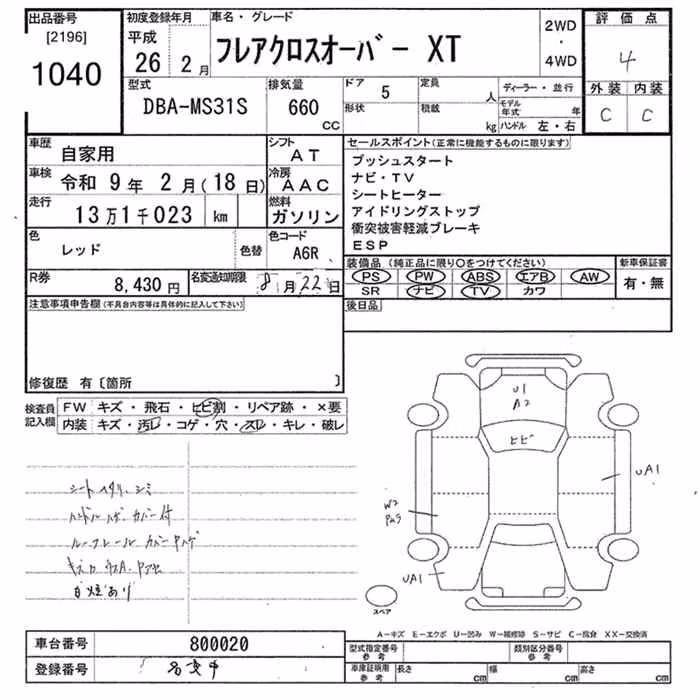 出品番号 初度登録年月 車名・グレード 2WD 評価点
[2196] 平成 フレアクロスオーバー XT ・ 4
1040 26 2月 4WD 外装 内装
型式 排気量 ドア 5 定員 人 ディーラー・並行 C C
DBA-MS31S 660 CC 形状 積載 kg モデル年式 年
ハンドル 左・右
車歴 自家用 シフト AT セールスポイント(正常に機能するものに限ります)
車検 令和 9年 2月(18日) 冷房 AAC プッシュスタート
ナビ・TV
走行 13万1千023 km 燃料 ガソリン シートヒーター
アイドリングストップ
色 レッド 色替 色コード A6R 衝突被害軽減ブレーキ
ESP
装備品 (純正品に限り○をつけてください) 新車保証書
R券 8,430円 名変通期限 8月22日 PS PW ABS エアB AW 有・無
SR ナビ TV カワ
注意事項申告欄(不具合内容等は具体的に記入して下さい) 後日品
修復歴 有〔箇所 〕
検査員 FW キズ・飛石・ヒビ割・リペア跡・×要
記入欄 内装 キズ・汚レ・コゲ・穴・スレ・キレ・破レ
U1
A2
ヒビ
UA1
W2
UA1
スペア
シート ヘタリ、シミ
ハンドルハゲ カバー付
ルーフレール カバー
白煙あり
A-キズ E-エクボ U-凹み W-補修跡 S-サビ C-腐食 XX-交換済
車台番号 800020 型式指定番号 参考 類別区分番号 参考
登録番号 名変中 車庫証明用 参考 長さ cm 幅 cm 高さ cm